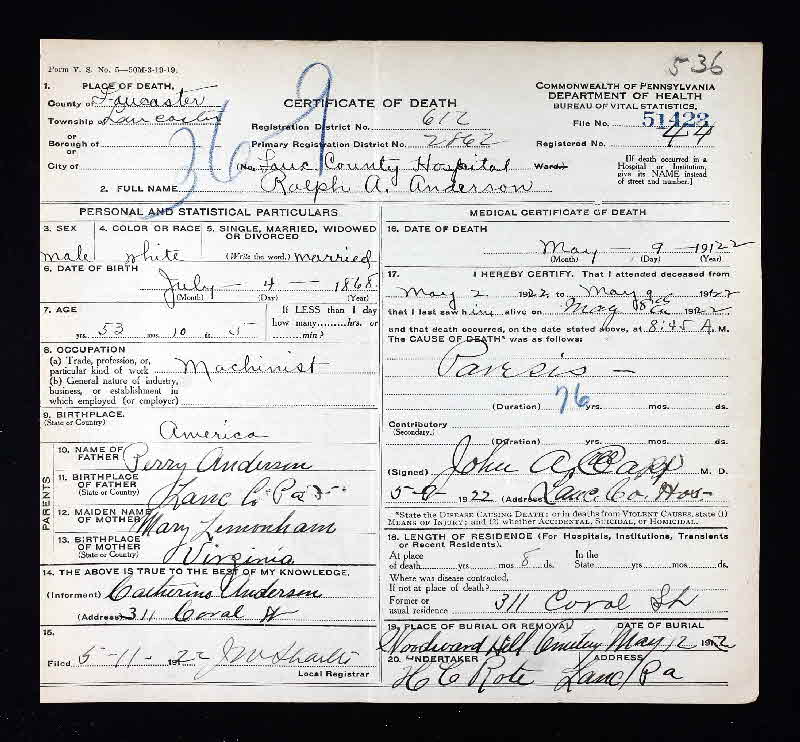 536
Form V. S. No. 5—50M-3-19-19.
1. PLACE OF DEATH.
County of Lancaster
Township of Lancaster
or
Borough of
or
City of
369
CERTIFICATE OF DEATH
Registration District No. 612
Primary Registration District No. 2862
(No. Lanc County Hospital Ward)
COMMONWEALTH OF PENNSYLVANIA
DEPARTMENT OF HEALTH
BUREAU OF VITAL STATISTICS.
File No. 51423
Registered No. 44
[If death occurred in a Hospital or Institution, give its NAME instead of street and number.]
2. FULL NAME Ralph A. Anderson
PERSONAL AND STATISTICAL PARTICULARS
3. SEX
male
4. COLOR OR RACE
white
5. SINGLE, MARRIED, WIDOWED OR DIVORCED
(Write the word.) married
6. DATE OF BIRTH
July — 4 — 1868
(Month) (Day) (Year)
7. AGE
53 yrs. 10 mo. 5 ds.
If LESS than 1 day how many........hrs. or ........min?
8. OCCUPATION
(a) Trade, profession, or, particular kind of work Machinist
(b) General nature of industry, business, or establishment in which employed (or employer)
9. BIRTHPLACE.
(State or Country)
America
PARENTS
10. NAME OF FATHER Perry Anderson
11. BIRTHPLACE OF FATHER (State or Country) Lanc Co Pa
12. MAIDEN NAME OF MOTHER Mary Limonham
13. BIRTHPLACE OF MOTHER (State or Country) Virginia
14. THE ABOVE IS TRUE TO THE BEST OF MY KNOWLEDGE.
(Informent) Catherine Anderson
(Address) 311 Coral St
15.
Filed 5-11- 1922
Local Registrar
MEDICAL CERTIFICATE OF DEATH
16. DATE OF DEATH
May — 9 — 1922
(Month) (Day) (Year)
17. I HEREBY CERTIFY, That I attended deceased from
May 2 1922, to May 9 1922
that I last saw him alive on May 8th 1922
and that death occurred, on the date stated above, at 8:45 A. M.
The CAUSE OF DEATH* was as follows:
Paresis —
76
(Duration) yrs. mos. ds.
Contributory
(Secondary.)
(Duration) yrs. mos. ds.
(Signed) John A. M. D.
5-9 1922 (Address) Lanc. Co Hos-
*State the DISEASE CAUSING DEATH; or in deaths from VIOLENT CAUSES, state (1) MEANS OF INJURY; and (2) whether ACCIDENTAL, SUICIDAL, or HOMICIDAL.
18. LENGTH OF RESIDENCE (For Hospitals, Institutions, Transients or Recent Residents).
At place of death yrs. mos. 8 ds. In the State yrs. mos. ds.
Where was disease contracted, If not at place of death?
Former or usual residence 311 Coral St
19. PLACE OF BURIAL OR REMOVAL DATE OF BURIAL
Woodward Hill Cemetery May 12 1922
20. UNDERTAKER ADDRESS
H C Rote Lanc Pa